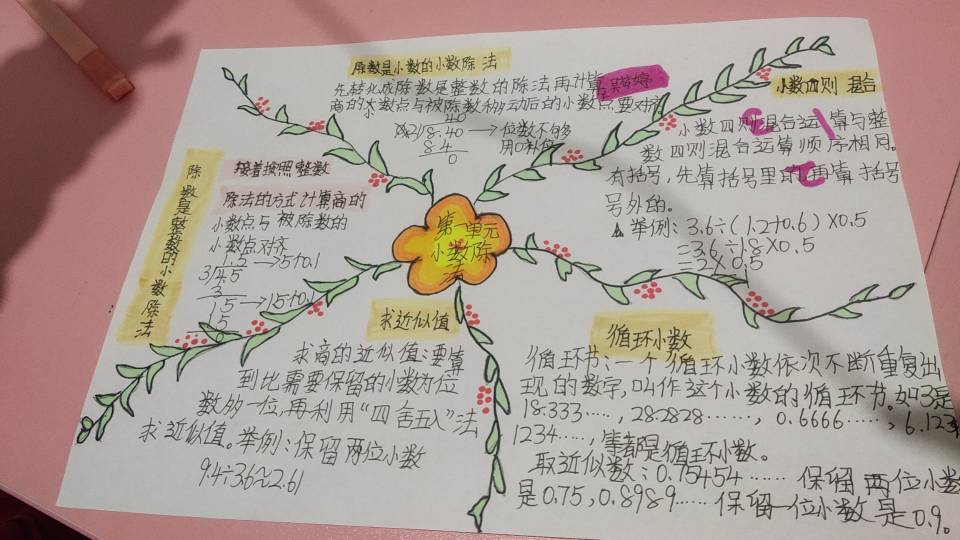 除数是小数的小数除法
先转化成除数是整数的除法再计算
商的小数点与被除数移动后的小数点要对齐
40
0.21/8.40 → 位数不够
8.4 用0补位
0
小数四则混合
小数四则混合运算与整
数四则混合运算顺序相同。
有括号,先算括号里的,再算括号
号外的。
举例:3.6÷(1.2+0.6)×0.5
=3.6÷1.8×0.5
=2×0.5
除数是整数的小数除法
接着按照整数
除法的方式计算商的
小数点与被除数的
小数点对齐
1.5 → 5个0.1
3/4.5
3
15 → 15个0.1
15
0
第一单元
小数除
法
求近似值
求商的近似值:要算
到比需要保留的小数位
数多一位,再利用“四舍五入”法
求近似值。举例:保留两位小数
9.4÷3.6≈2.61
循环小数
循环节:一个循环小数依次不断重复出
现的数字,叫作这个小数的循环节。如3是
18.333……,28.2828……,0.6666……,6.123
1234……,等都是循环小数。
取近似数:0.75454……保留两位小数
是0.75,0.8989……保留一位小数是0.9。